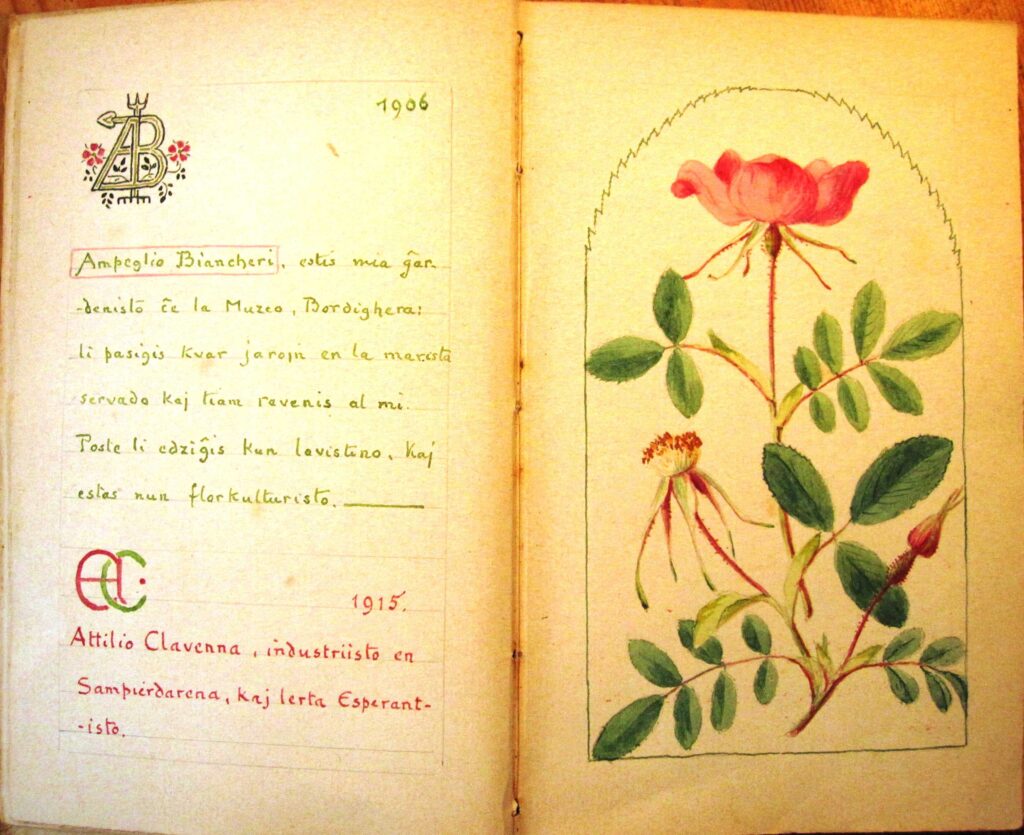 AB
1906
Ampeglio Biancheri, estis mia ĝar-
-denistō ĉe la Muzeo, Bordighera:
li pasigis kvar jarojn en la marista
servado kaj tiam revenis al mi.
Poste li edziĝis kun lavistino, kaj
estas nun florkulturisto.
AC
1915.
Attilio Clavenna, industriisto en
Sampierdarena, kaj lerta Esperant-
-isto.